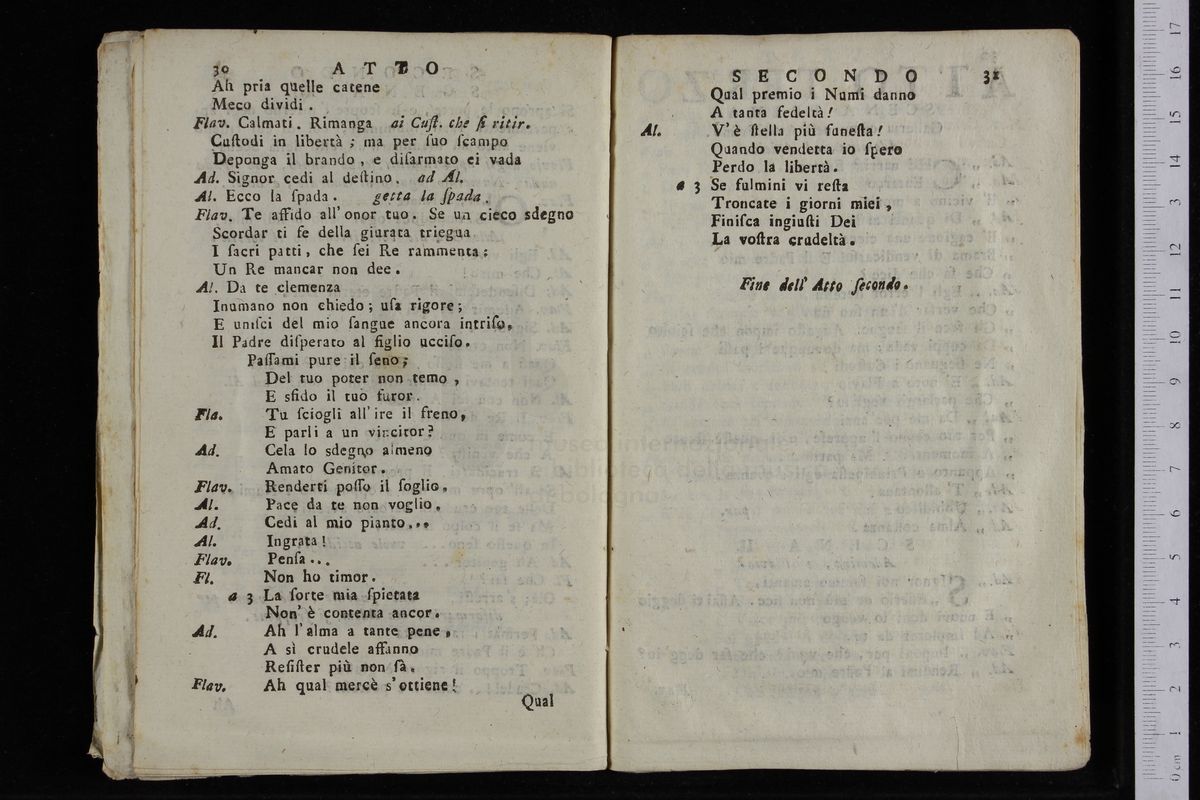 30 ATTO
Ah pria quelle catene
Meco dividi.
Flav. Calmati. Rimanga ai Cuſt. che ſi ritir.
Cuſtodi in libertà; ma per ſuo ſcampo
Deponga il brando, e diſarmato ei vada
Ad. Signor cedi al deſtino. ad Al.
Al. Ecco la ſpada. getta la ſpada.
Flav. Te affido all'onor tuo. Se un cieco sdegno
Scordar ti fe della giurata triegua
I ſacri patti, che ſei Re rammenta:
Un Re mancar non dee.
Al. Da te clemenza
Inumano non chiedo; uſa rigore;
E uniſci del mio ſangue ancora intriſo,
Il Padre diſperato al figlio ucciſo.
Paſſami pure il ſeno;
Del tuo poter non temo,
E sfido il tuo furor.
Fla. Tu ſciogli all'ire il freno,
E parli a un vincitor?
Ad. Cela lo sdegno almeno
Amato Genitor.
Flav. Renderti poſſo il ſoglio.
Al. Pace da te non voglio.
Ad. Cedi al mio pianto...
Al. Ingrata!
Flav. Penſa...
Fl. Non ho timor.
a 3 La ſorte mia ſpietata
Non' è contenta ancor.
Ad. Ah l'alma a tante pene,
A sì crudele affanno
Reſiſter più non ſà.
Flav. Ah qual mercè s'ottiene!
Qual
SECONDO 31
Qual premio i Numi danno
A tanta fedeltà!
Al. V'è ſtella più funeſta!
Quando vendetta io ſpero
Perdo la libertà.
a 3 Se fulmini vi reſta
Troncate i giorni miei,
Finiſca ingiuſti Dei
La voſtra crudeltà.
Fine dell' Atto ſecondo.